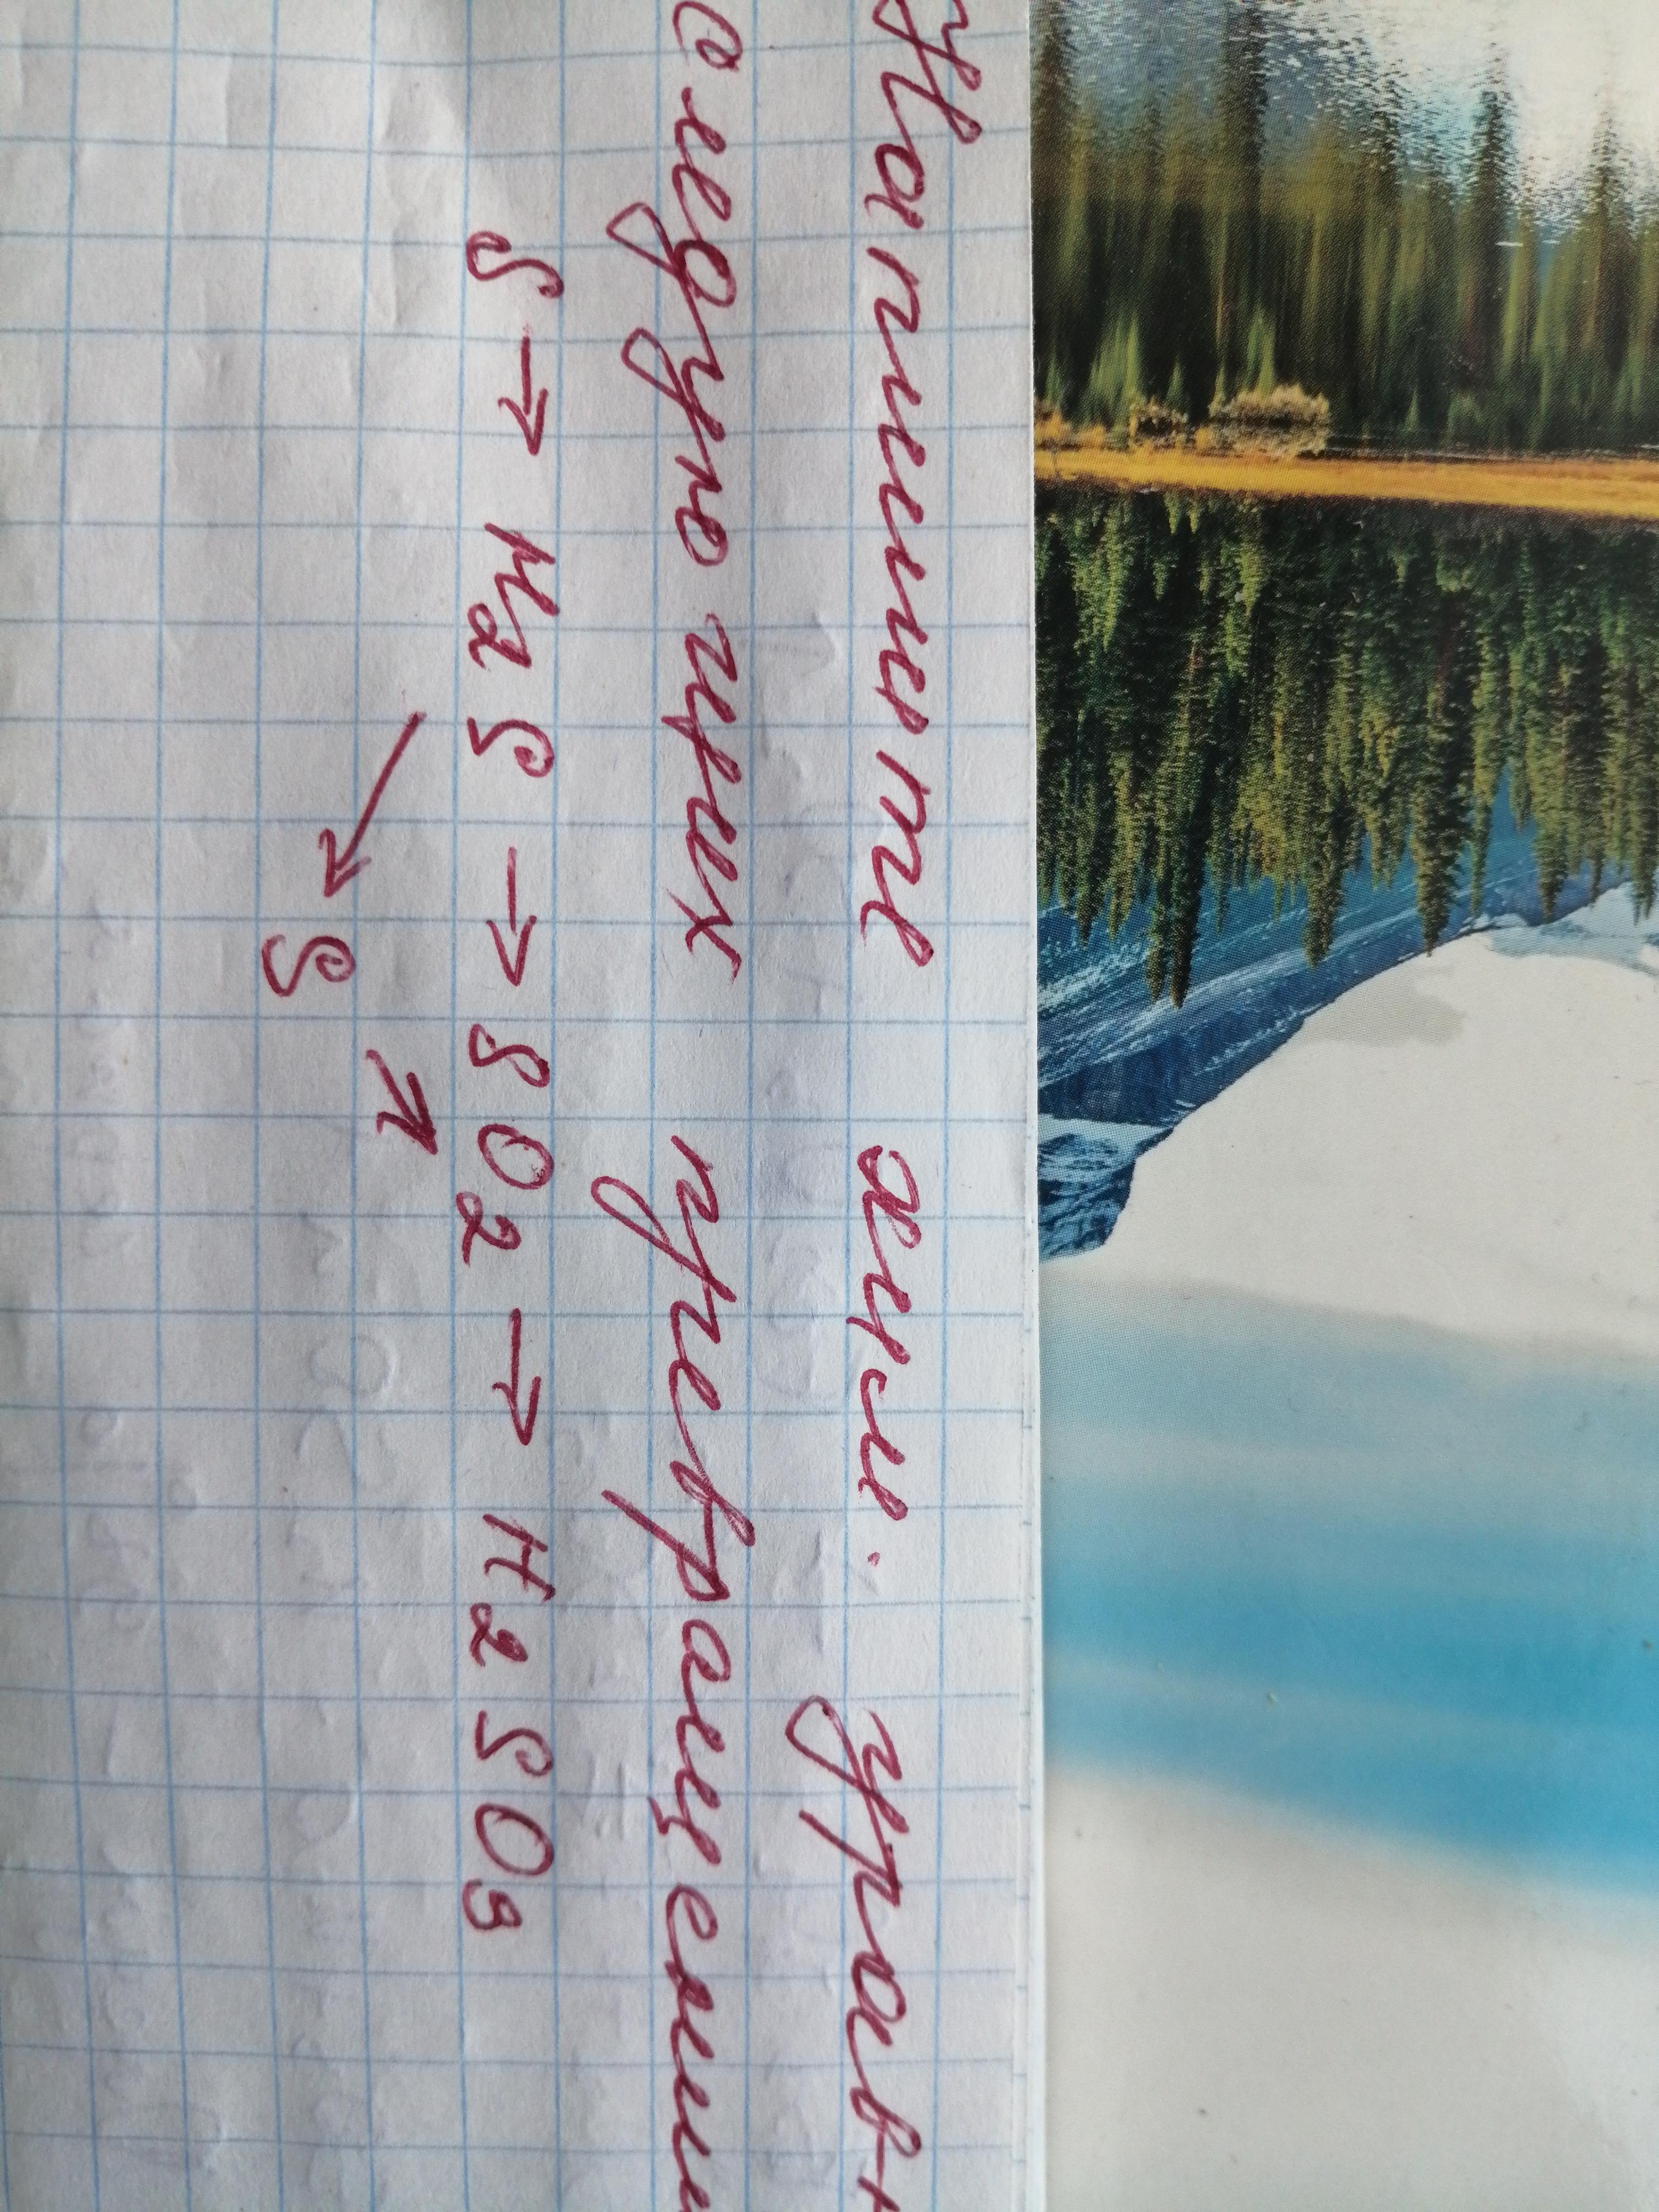 Напишите хим. уравн
следующих превращений
S → H₂S → SO₂ → H₂SO₃
↘ S ↗